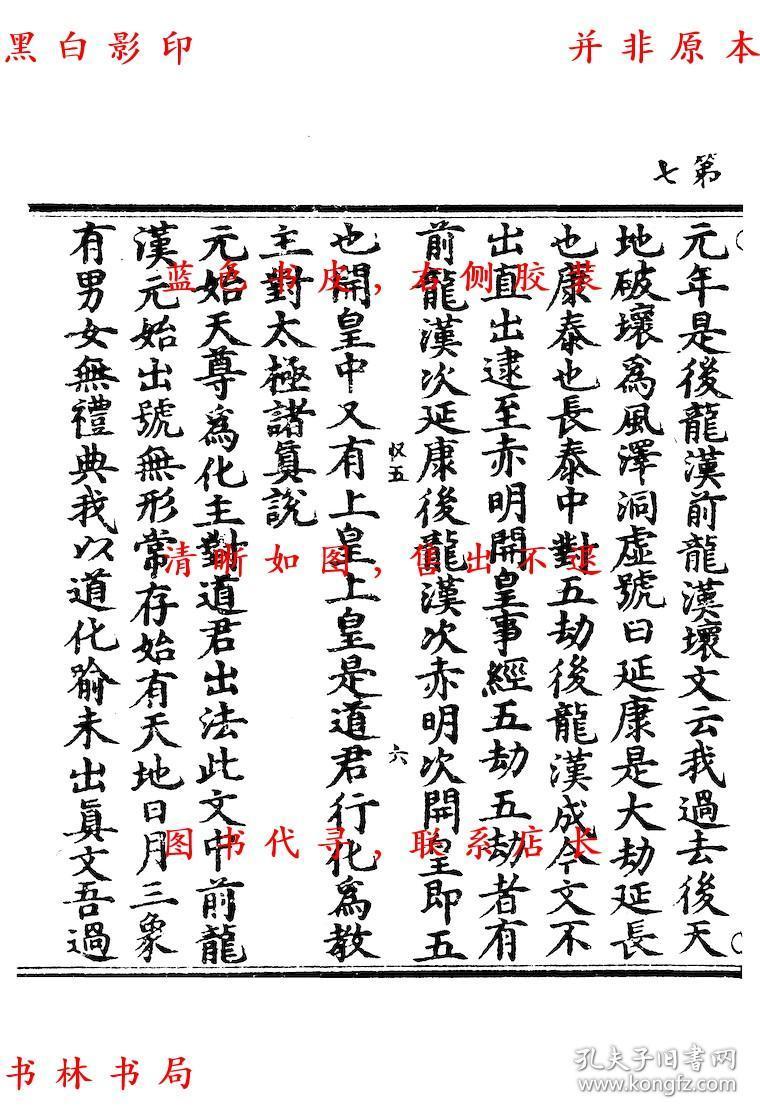 黑白影印
并非原本
第七
元年是後龍漢前龍漢壞文云我過去後天
地破壞為風澤洞虛號曰延康是大劫延長
也康泰也長泰中對五劫後龍漢成今文不
出直出逮至赤明開皇事經五劫五劫者有
前龍漢次延康後龍漢次赤明次開皇即五
也開皇中又有上皇上皇是道君行化為教
主對太極諸真說
元始天尊為化主對道君出法此文中前龍
漢元始出號無形常存始有天地日月三象
有男女無禮典我以道化喻未出真文吾過
五
六
蓝色书皮,右侧胶装
清晰如图,售出不退
图书代寻,联系店长
书林书局
孔夫子旧书网
www.kongfz.com